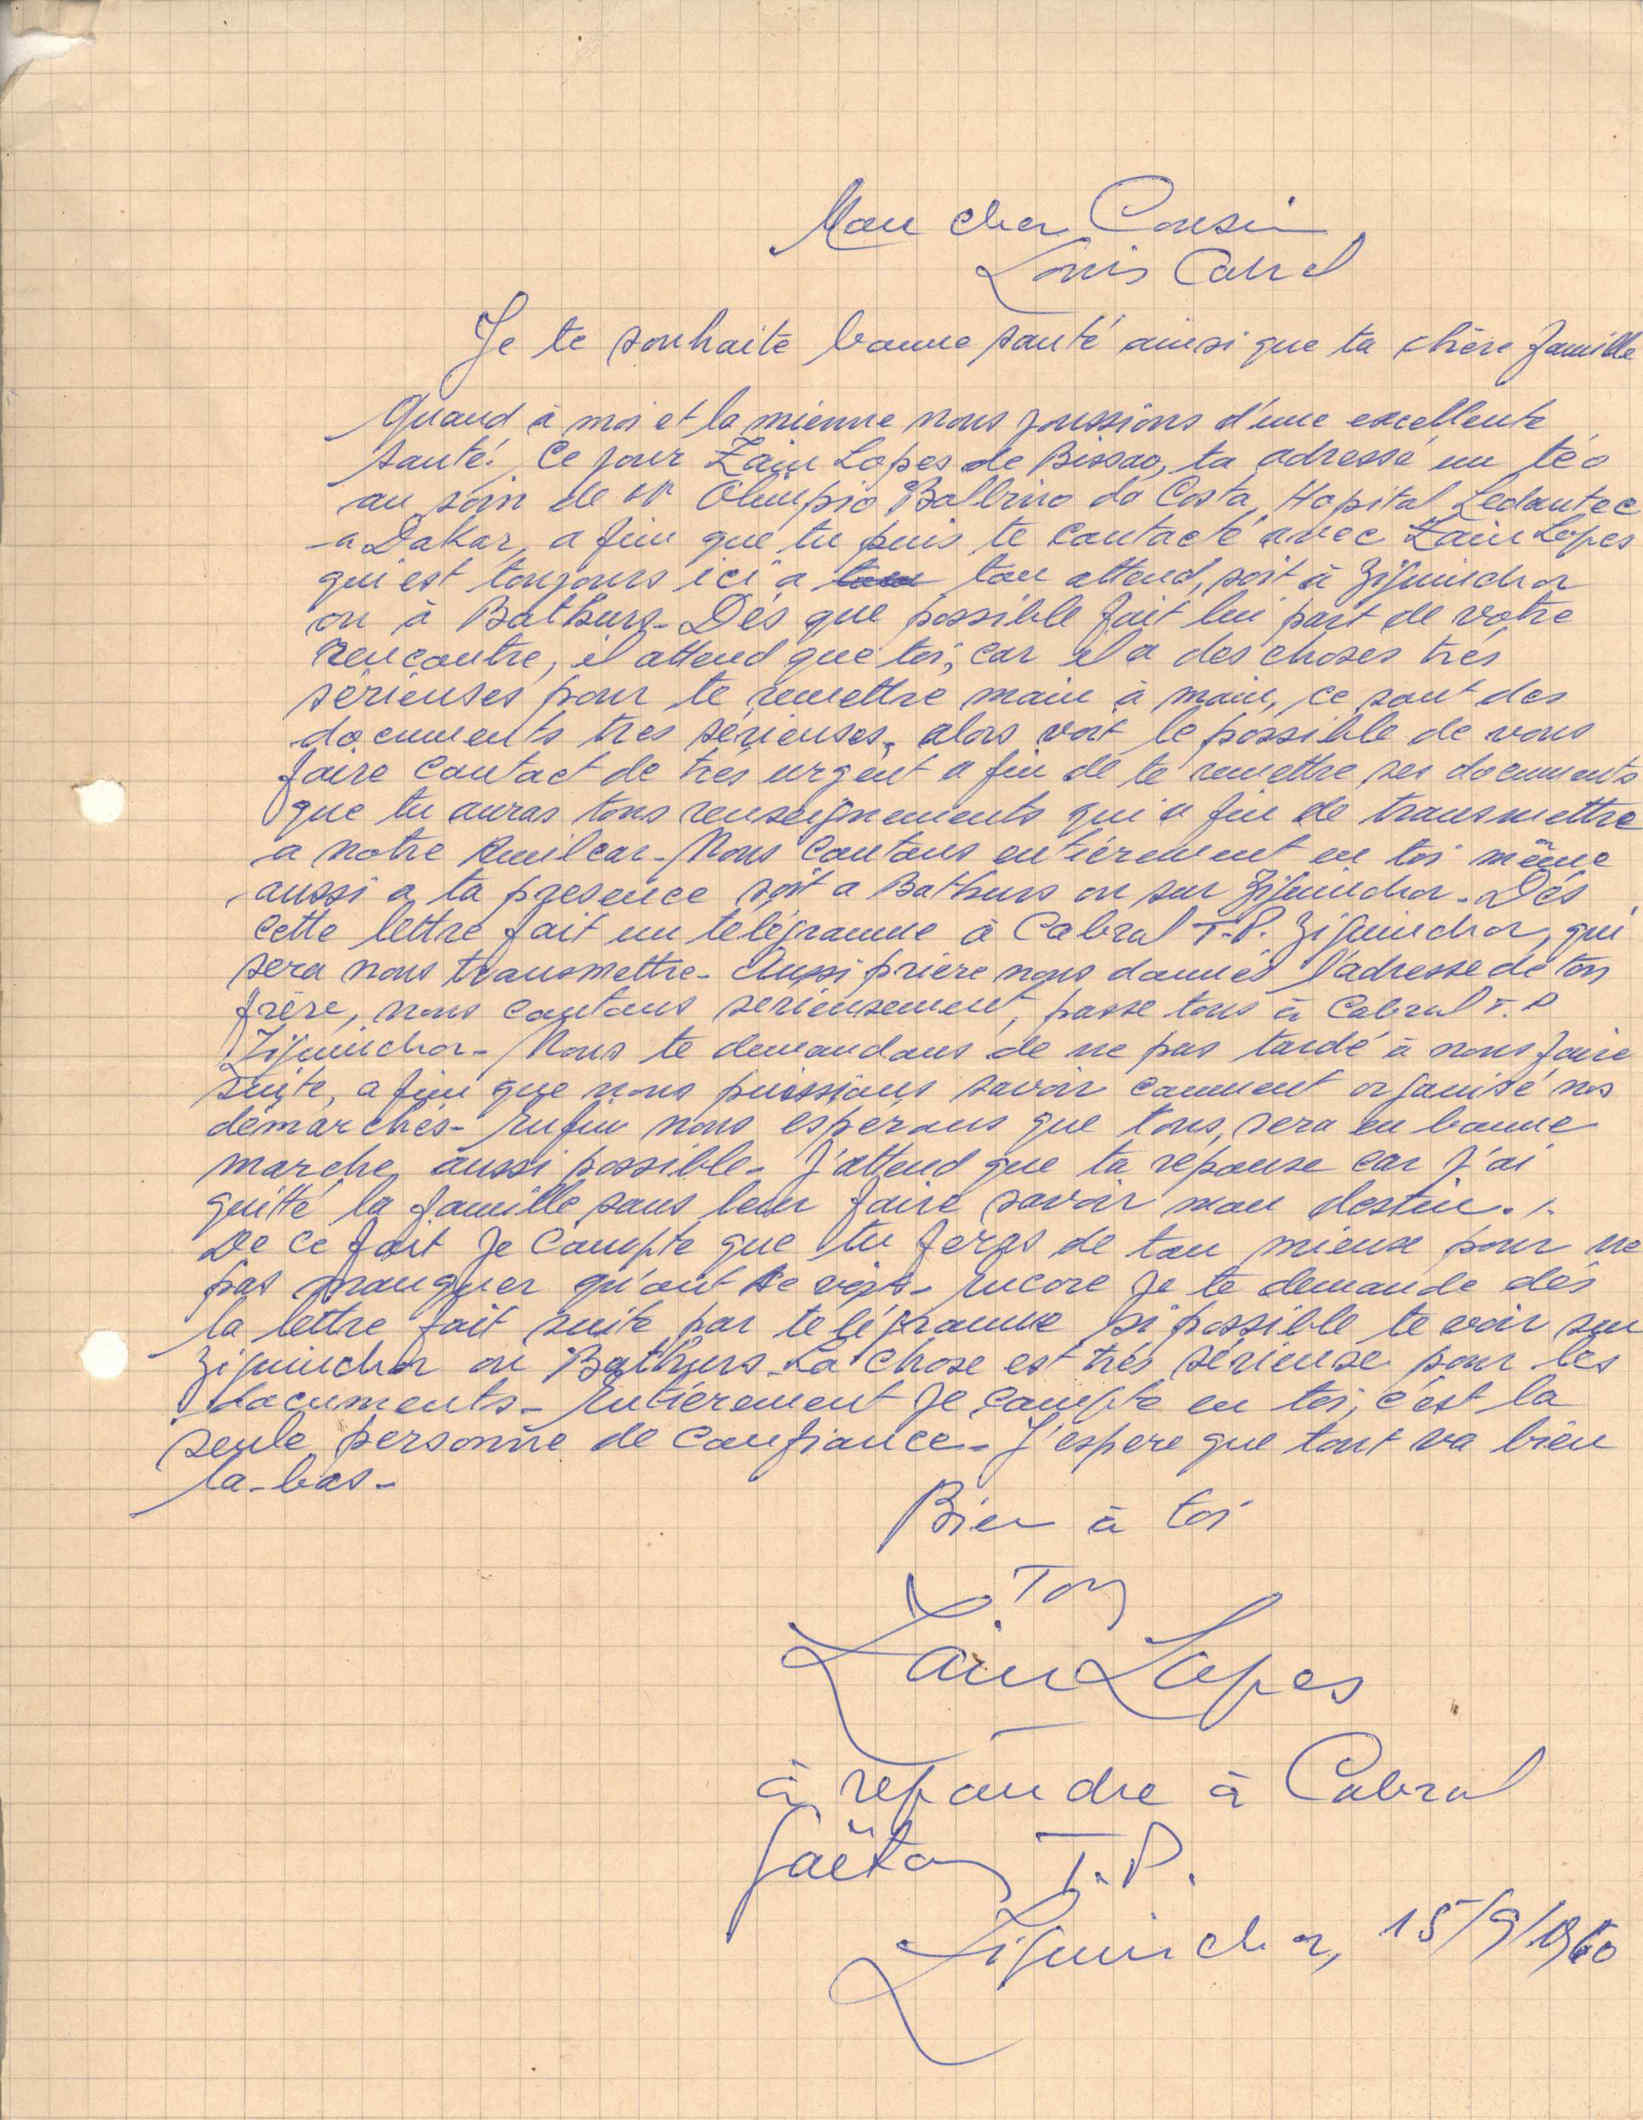 Mon cher Cousin
Louis Cabral
Je te souhaite bonne santé ainsi que ta chère famille
Quand à moi et la mienne nous joussions d'une excellente
santé. Ce jour Zain Lopes de Bissao, ta adressé un
au soin de Mr Olimpio Balbino da Costa Hopital Ledantec
a Dakar, a fin que tu puis te contacté avec Zain Lopes
qui est toujours ici a ton attend, soit à Ziguinchor
ou à Bathurs - Dès que possible fait lui part de votre
rencontre, il attend que toi, car il a des choses très
sérieuses pour te remettre main à main, ce sont des
documents tres sérieuses, alors voit le possible de vous
faire contact de très urgent a fin de te remettre ses documents
que tu auras tous renseignements qui a fin de transmettre
a notre Amilcar - Nous contons entièrement en toi même
aussi a ta presence soit a Bathurs ou sur Ziguinchor - Dès
cette lettre fait un télégramme à Cabral T.P. Ziguinchor, qui
sera nous transmettre - Aussi prière nous donner l'adresse de ton
frère, nous contons serieusement, passe tous à Cabral T.P
Ziguinchor - Nous te demandons de ne pas tardé à nous faire
suite, a fin que nous puissions savoir comment organisé nos
démarches - Enfin nous espérons que tous, sera en bonne
marche, aussi possible - J'attend que ta reponse car j'ai
quitté la famille sans leur faire savoir mon destin./.
De ce fait je compte que tu feras de ton mieux pour ne
pas manquer qu'ont se voir - Encore je te demande dès
la lettre fait suite par télégramme si possible te voir sur
Ziguinchor ou Bathurs - La chose est très sérieuse pour les
documents - Entièrement je compte en toi, c'est la
seule personne de confiance - J'espere que tout va bien
la-bas -
Bien à toi
Ton
Zain Lopes
à repondre à Cabral
Gaëtan T.P.
Ziguinchor, 15/9/1960